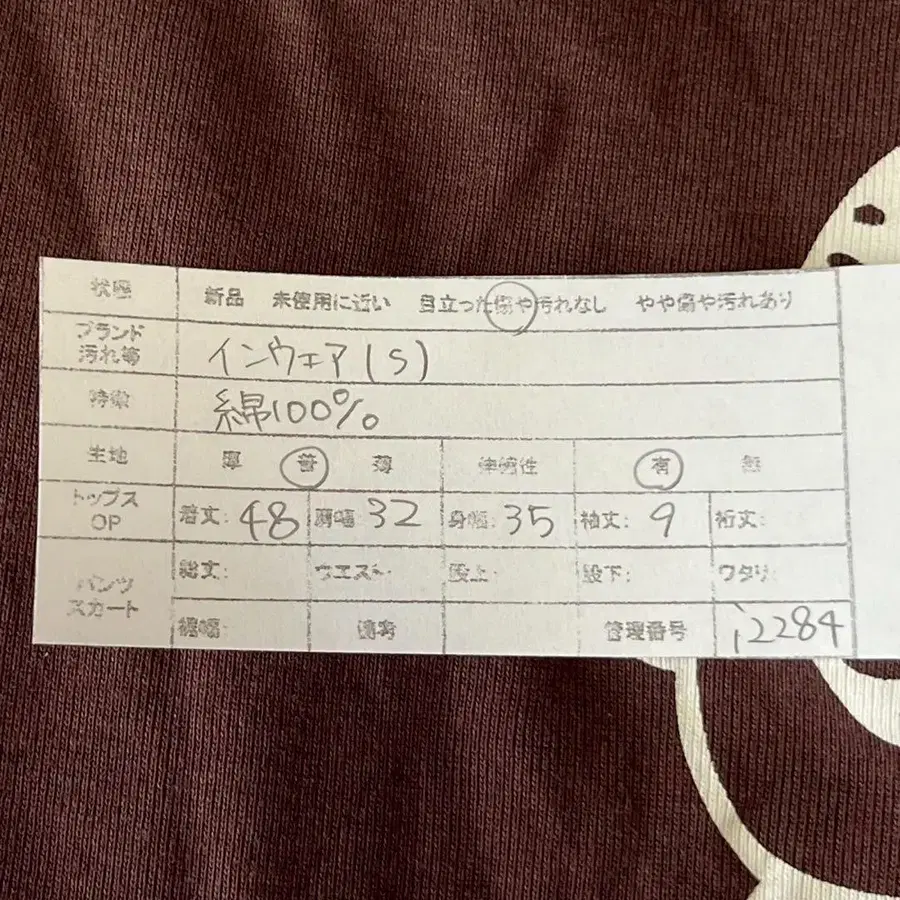 状態 新品 未使用に近い 目立った傷や汚れなし やや傷や汚れあり
ブランド
汚れ等 インウェア(S)
特徴 綿100%
生地 厚 普 薄 伸縮性 有 無
トップス
OP 着丈: 48 肩幅: 32 身幅: 35 袖丈: 9 裄丈:
パンツ
スカート 総丈: ウエスト: 股上: 股下: ワタリ:
裾幅: 備考 管理番号 i2284